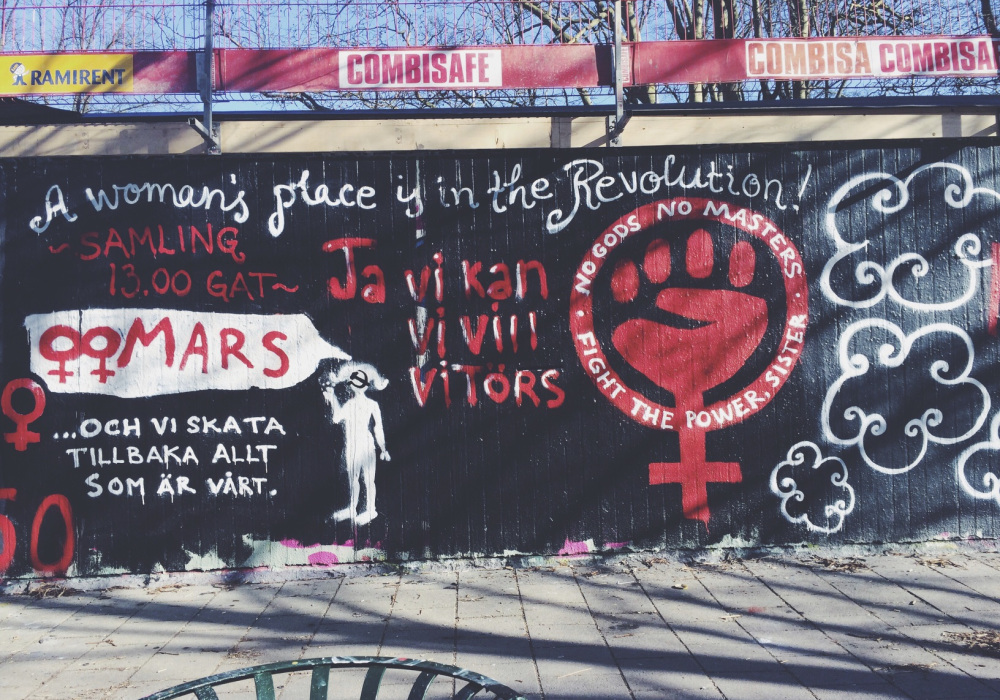 RAMIRENT
COMBISAFE
COMBISA COMBISA
A woman's place is in the Revolution!
~SAMLING
13.00 GAT~
MARS
...OCH VI SKATA
TILLBAKA ALLT
SOM ÄR VÅRT.
Ja vi kan
vi vill
vi TÖRS
NO GODS NO MASTERS
FIGHT THE POWER, SISTER
50